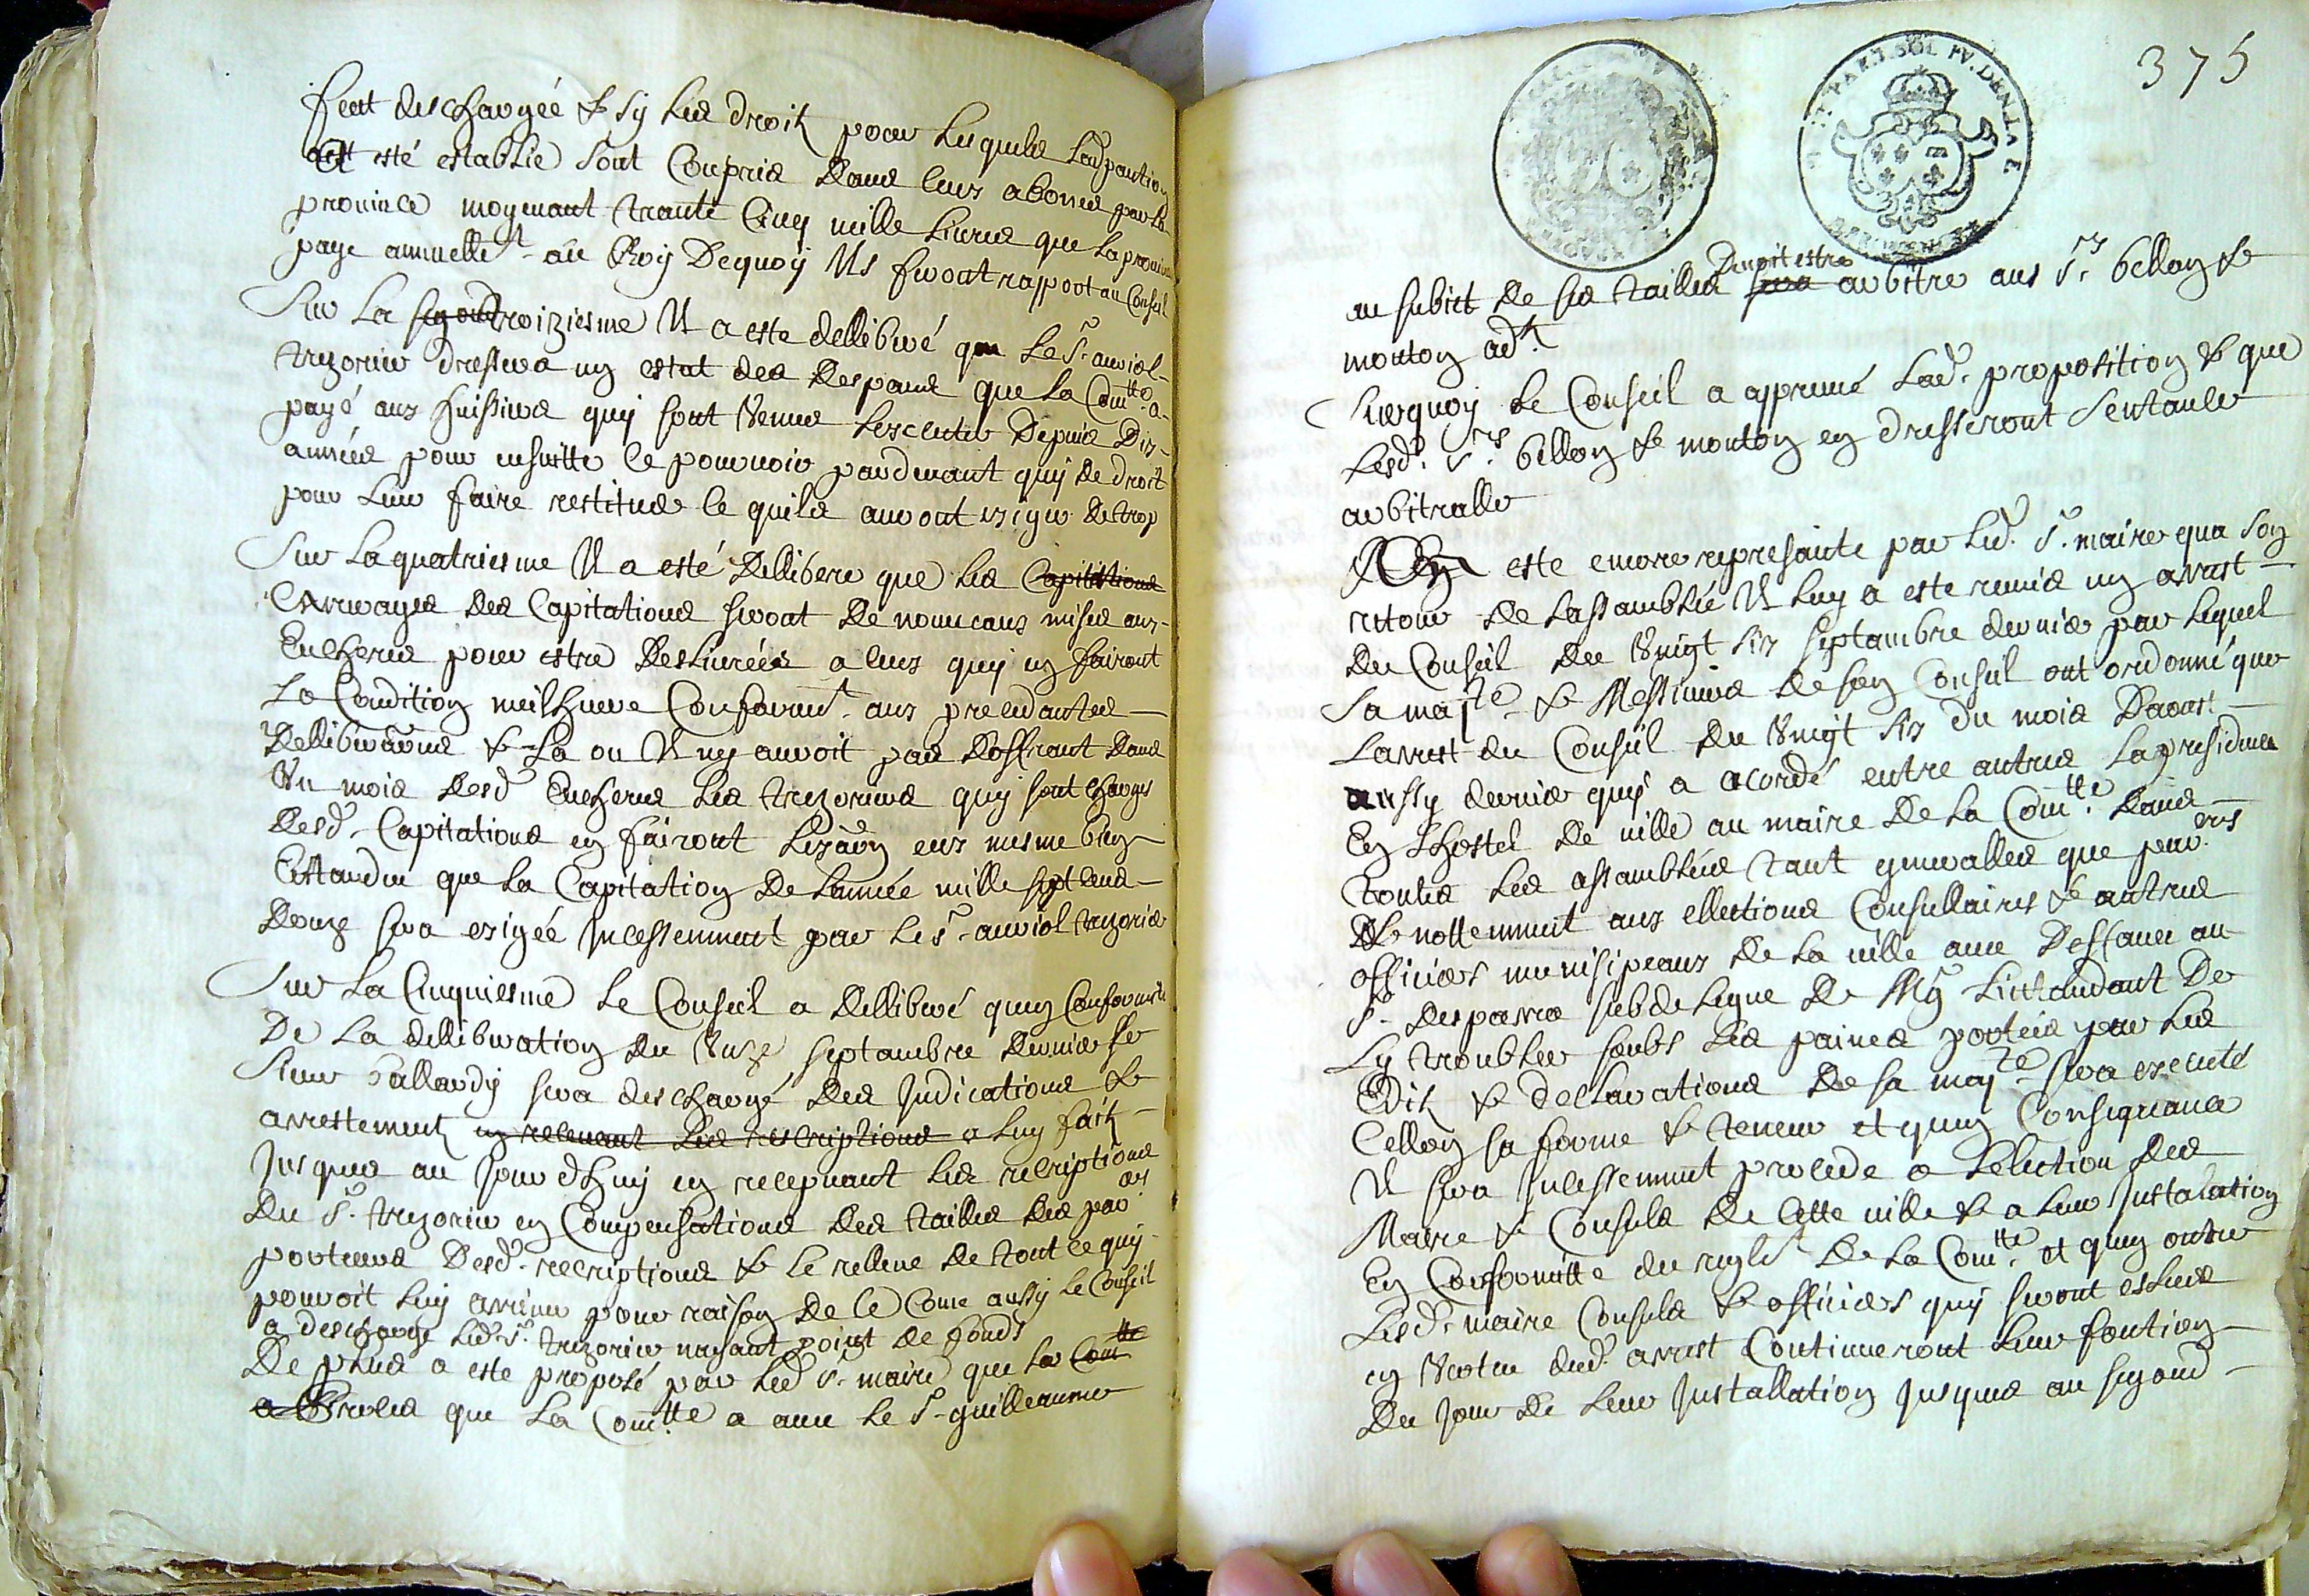 feut deschargée & sy les droits pour lesquels lad pention
a esté establie sont Compris dans ceux abonés par la
province moyenant trante Cinq mille livres que la province
paye annuellem.t au Roy Dequoy Ils feront rapport au Conseil
Sur La segond troiziesme Il a este delliberé que Le S.r auriol
trezorier dressera un estat des despans que la Com.tte a
payé aux huissiers quy sont venus lexecuter Depuis Dix
années pour ensuitte ce pourvoir pardevant quy de droit
pour leur faire restituer ce quils auront exiger de trop
Sur La quatriesme Il a esté Dellibere que les Capitations
Arrerages des Capitations seront de nouveaux mises aux
Encheres pour estre Deslivrées a ceux quy en fairont
La Condition meilheure Conformem.t aux precedantes
Dellibera͠ons & La ou Il ny auroit pas Doffrant Dans
Un mois desd Encheres les trezoriers quy sont charges
desd. Capitations en fairont lexa͠on eux mesme bien
Entandu que la Capitation de Lannée mille sept cens
Douze sera exigée Incessemment par le S.r auriol trezorier
Sur La Cinquiesme Le Conseil a Delliberé quen Conformité
De La delliberation du Unze septambre dernier le
Sieur Pallardy sera deschargé des Judications &
arrestements en relevant les rescriptions a luy faits
Jusques au Jour dhuy en recepvant les recriptions
Du S.r trezorier en Compensations des tailles des par.ers
porteurs Desd. recriptions & le relleve de tout ce quy
pouroit luy arriver pour raison de ce Come aussy le Conseil
a descharge led. S.r trezorier nayant point de fonds
De plus a este proposé par led S.r maire que la Com.tte
a proces que La Com.tte a avec le S.r guilleaume
375
au subiet de ses tailles Devoit estre sera arbitre aux S.rs bellon &
mouton ad.ts
Surquoy Le Conseil a appruvé Lad. proposition & que
Lesd. S.rs bellon & mouton en dresseront Sentance
arbitralle
este encore represante par led. S.r maire qua son
retour de Lassamblée Il luy a este remis un arrest
Du Conseil du Vingt six septambre dernier par lequel
Sa maj.te & Messieurs de son Conseil ont ordonné que
Larrest du Conseil du Vingt six du mois Daoust
aussy dernier quy a acordé entre autres La presidance
En Lhostel de ville au maire de la Com.tte Dans
toutes les assamblées tant generalles que par.eres
& nottemment aux ellections Consullaires & autres
officiers munisipeaux de la ville avec Deffance au
S.r despares subdelegue de Mg.r Lintandant De
Ly troubler soubs les paines portées par les
Edits & declarations de sa maj.te sera executé
Cellon sa forme & teneur et quen Consequance
Il sera Incessemment procede a Lelection des
Maire & Consuls de Cette ville & a leur Instalation
En Conformitte du regle.t de La Com.tte et quen outre
Lesd. maire Consuls & officiers quy seront eslus
en Vertu dud. arrest Continueront leur fontion
Du Jour de leur Installation Jusques au segond